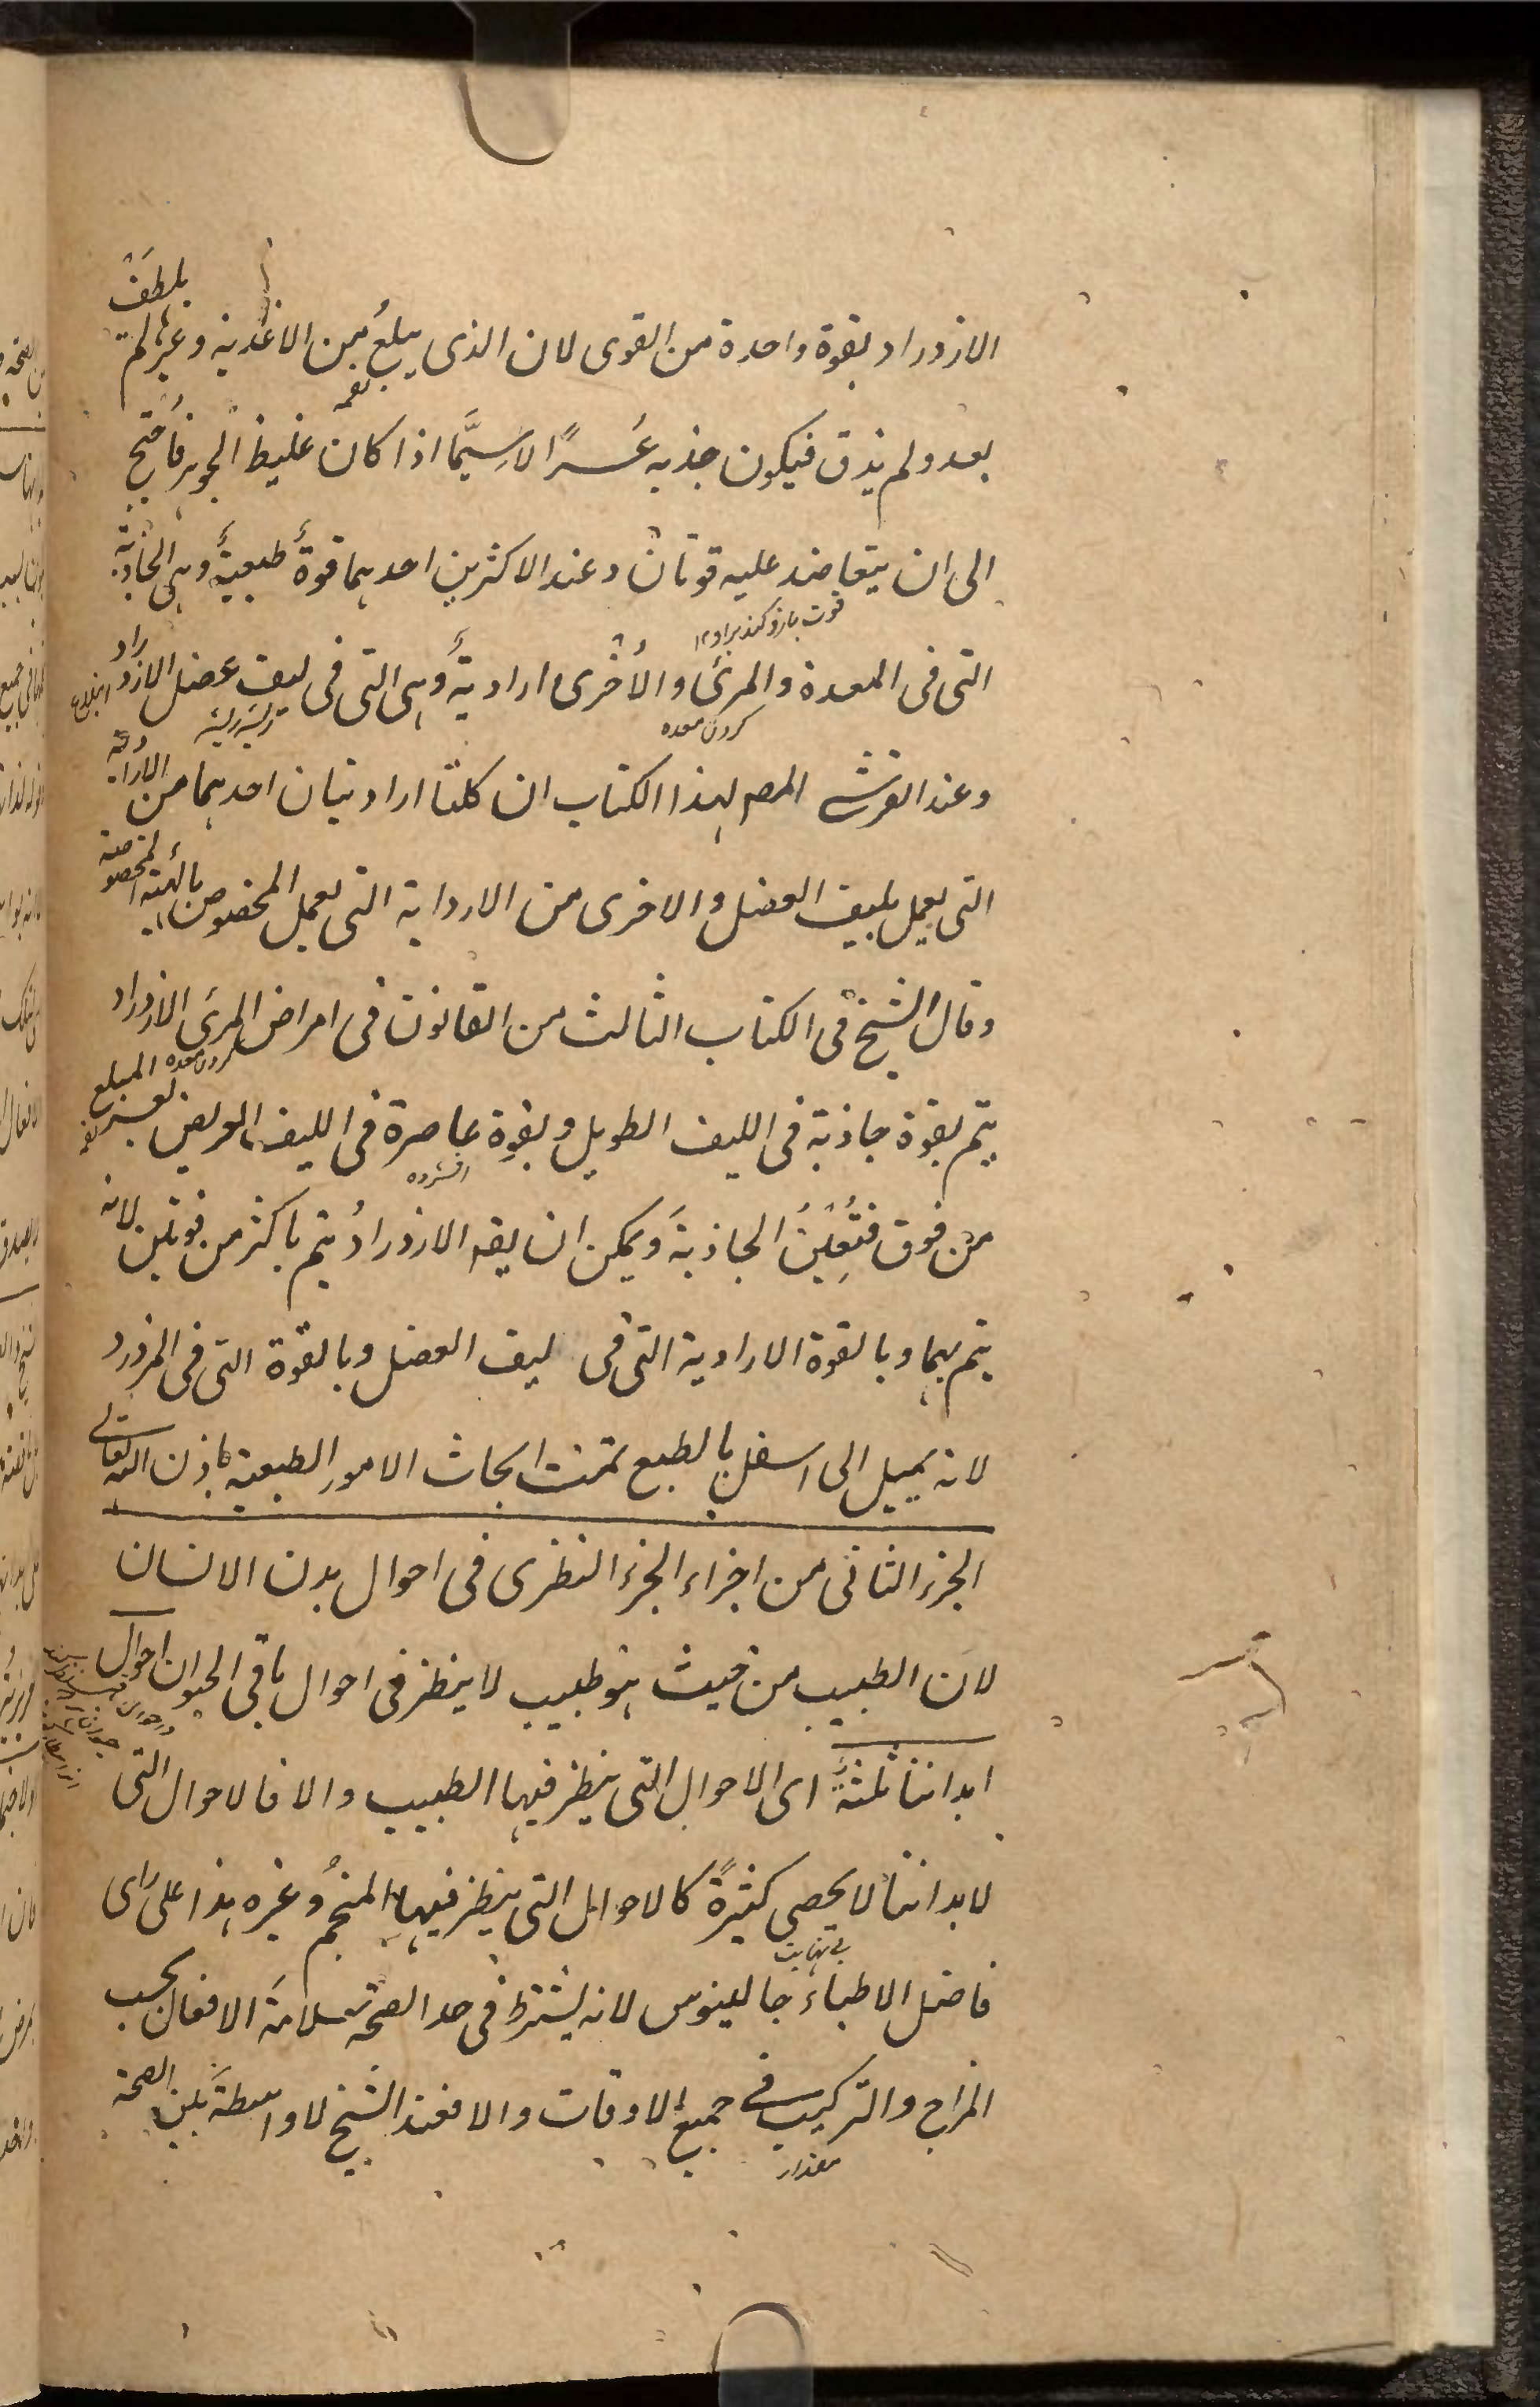 الازدراد بقوة واحدة من القوى لان الذى يبلع من الاغذية وغيرها لم يلطف
لقمه
بعد ولم يذق فيكون جذبه عسرًا لاسيَّما اذا كان غليظ الجوهر فاُحتيج
الى ان يتعاضد عليه قوتان وعند الاكثرين احدهما قوةٌ طبعيةٌ وهى الجاذبة
التى فى المعدة والمرئ والاُخرى اراديةٌ وهى التى فى ليف عضل الازدراد
ابتلاع
كردن معده
وعند القرشى المصـ لهذا الكتاب ان كلتا اراديتان احدهما من الارادية
التى يعمل بليف العضل والاخرى من الاردایة التى يعمل المخصوص بالهيئة المخصوصة
وقال الشيخ فى الكتاب الثالث من القانون فى امراض المرئ الازدراد
يتم بقوة جاذبة فى الليف الطويل وبقوةٍ عاصرة فى الليف العريض المبلع
افشرده
من فوق فتُعِينُ الجاذبةَ ويمكن ان يقـ الازدرادُ يتم باكثر من قوتين لانه
يتم بهما وبالقوة الارادية التى فى ليف العضل وبالقوة التى فى المزدرد
لانه يميل الى اسفل بالطبع تمت ابحاث الامور الطبعية باذن الله تعالى
الجزء الثانى من اجزاء الجزء النظرى فى احوال بدن الانسان
لان الطبيب من حيث هو طبيب لا ينظر فى احوال باقى الحيوان احوال
ابداننا ثلثةٌ اى الاحوال التى ينظر فيها الطبيب والا فالاحوال التى
لابداننا لا يحصى كثيرةً كالاحوال التى ينظر فيها المنجمُ وغيره هذا على راى
بے نهایت
فاضل الاطباء جالينوس لانه يشترط فى حد الصحة سلامةَ الافعال بحسب
المزاج والتركيب فے جميع الاوقات والا فعند الشيخ لا واسطةَ بين الصحة
مقدار